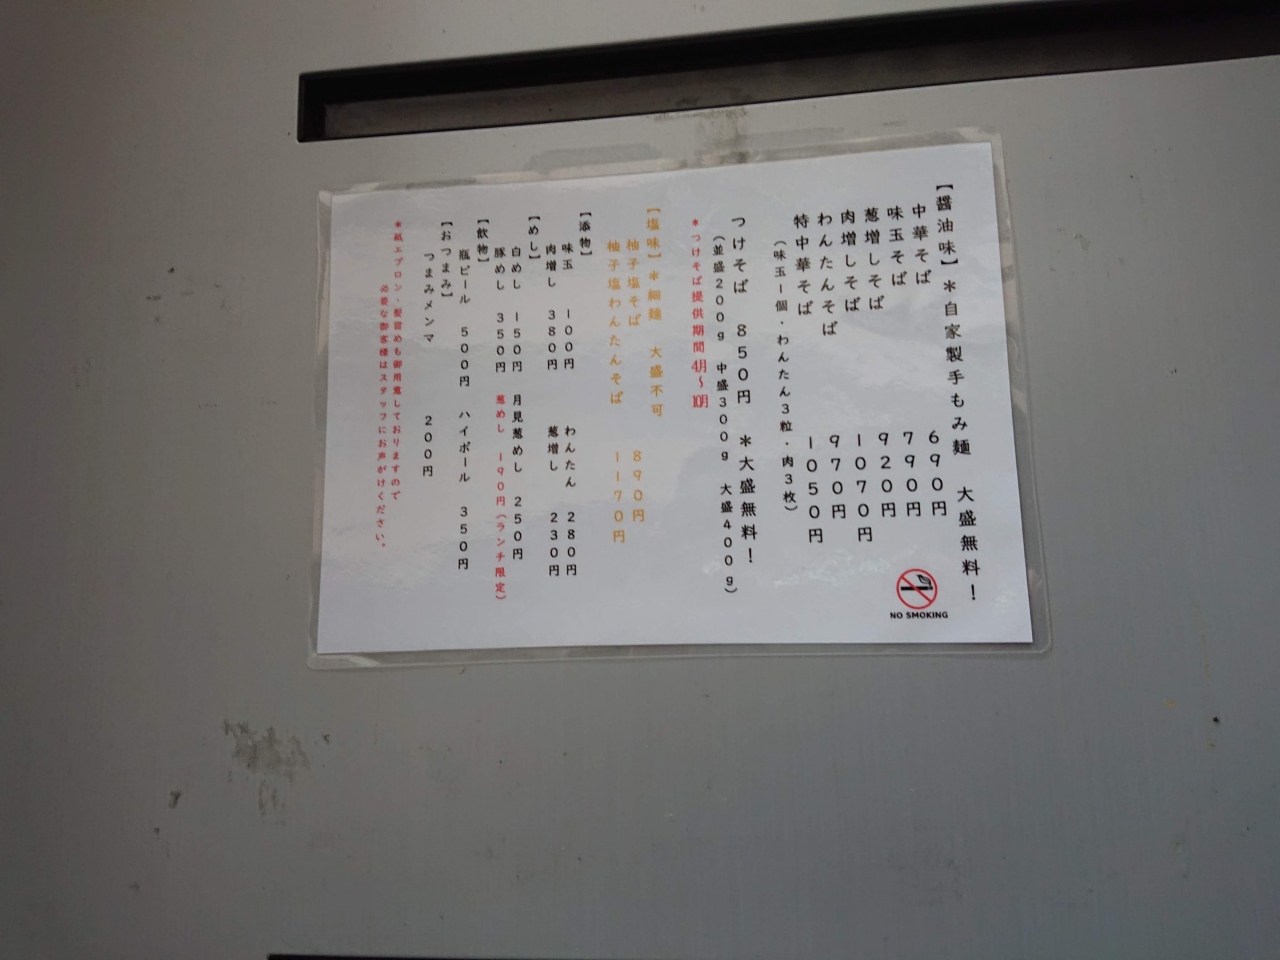 【醤油味】＊自家製手もみ麺　大盛無料！
中華そば　690円
味玉そば　790円
葱増しそば　920円
肉増しそば　1070円
わんたんそば　970円
特中華そば　1050円
（味玉1個・わんたん3粒・肉3枚）
つけそば　850円　＊大盛無料！
（並盛200g　中盛300g　大盛400g）
＊つけそば提供期間4月～10月
【塩味】＊細麺　大盛不可
柚子塩そば　890円
柚子塩わんたんそば　1170円
【添物】
味玉　100円　わんたん　280円
肉増し　380円　葱増し　230円
【めし】
白めし　150円　月見葱めし　250円
豚めし　350円　葱めし　190円（ランチ限定）
【飲物】
瓶ビール　500円　ハイボール　350円
【おつまみ】
つまみメンマ　200円
＊紙エプロン・髪留めも御用意しておりますので
必要な御客様はスタッフにお声がけください。
NO SMOKING